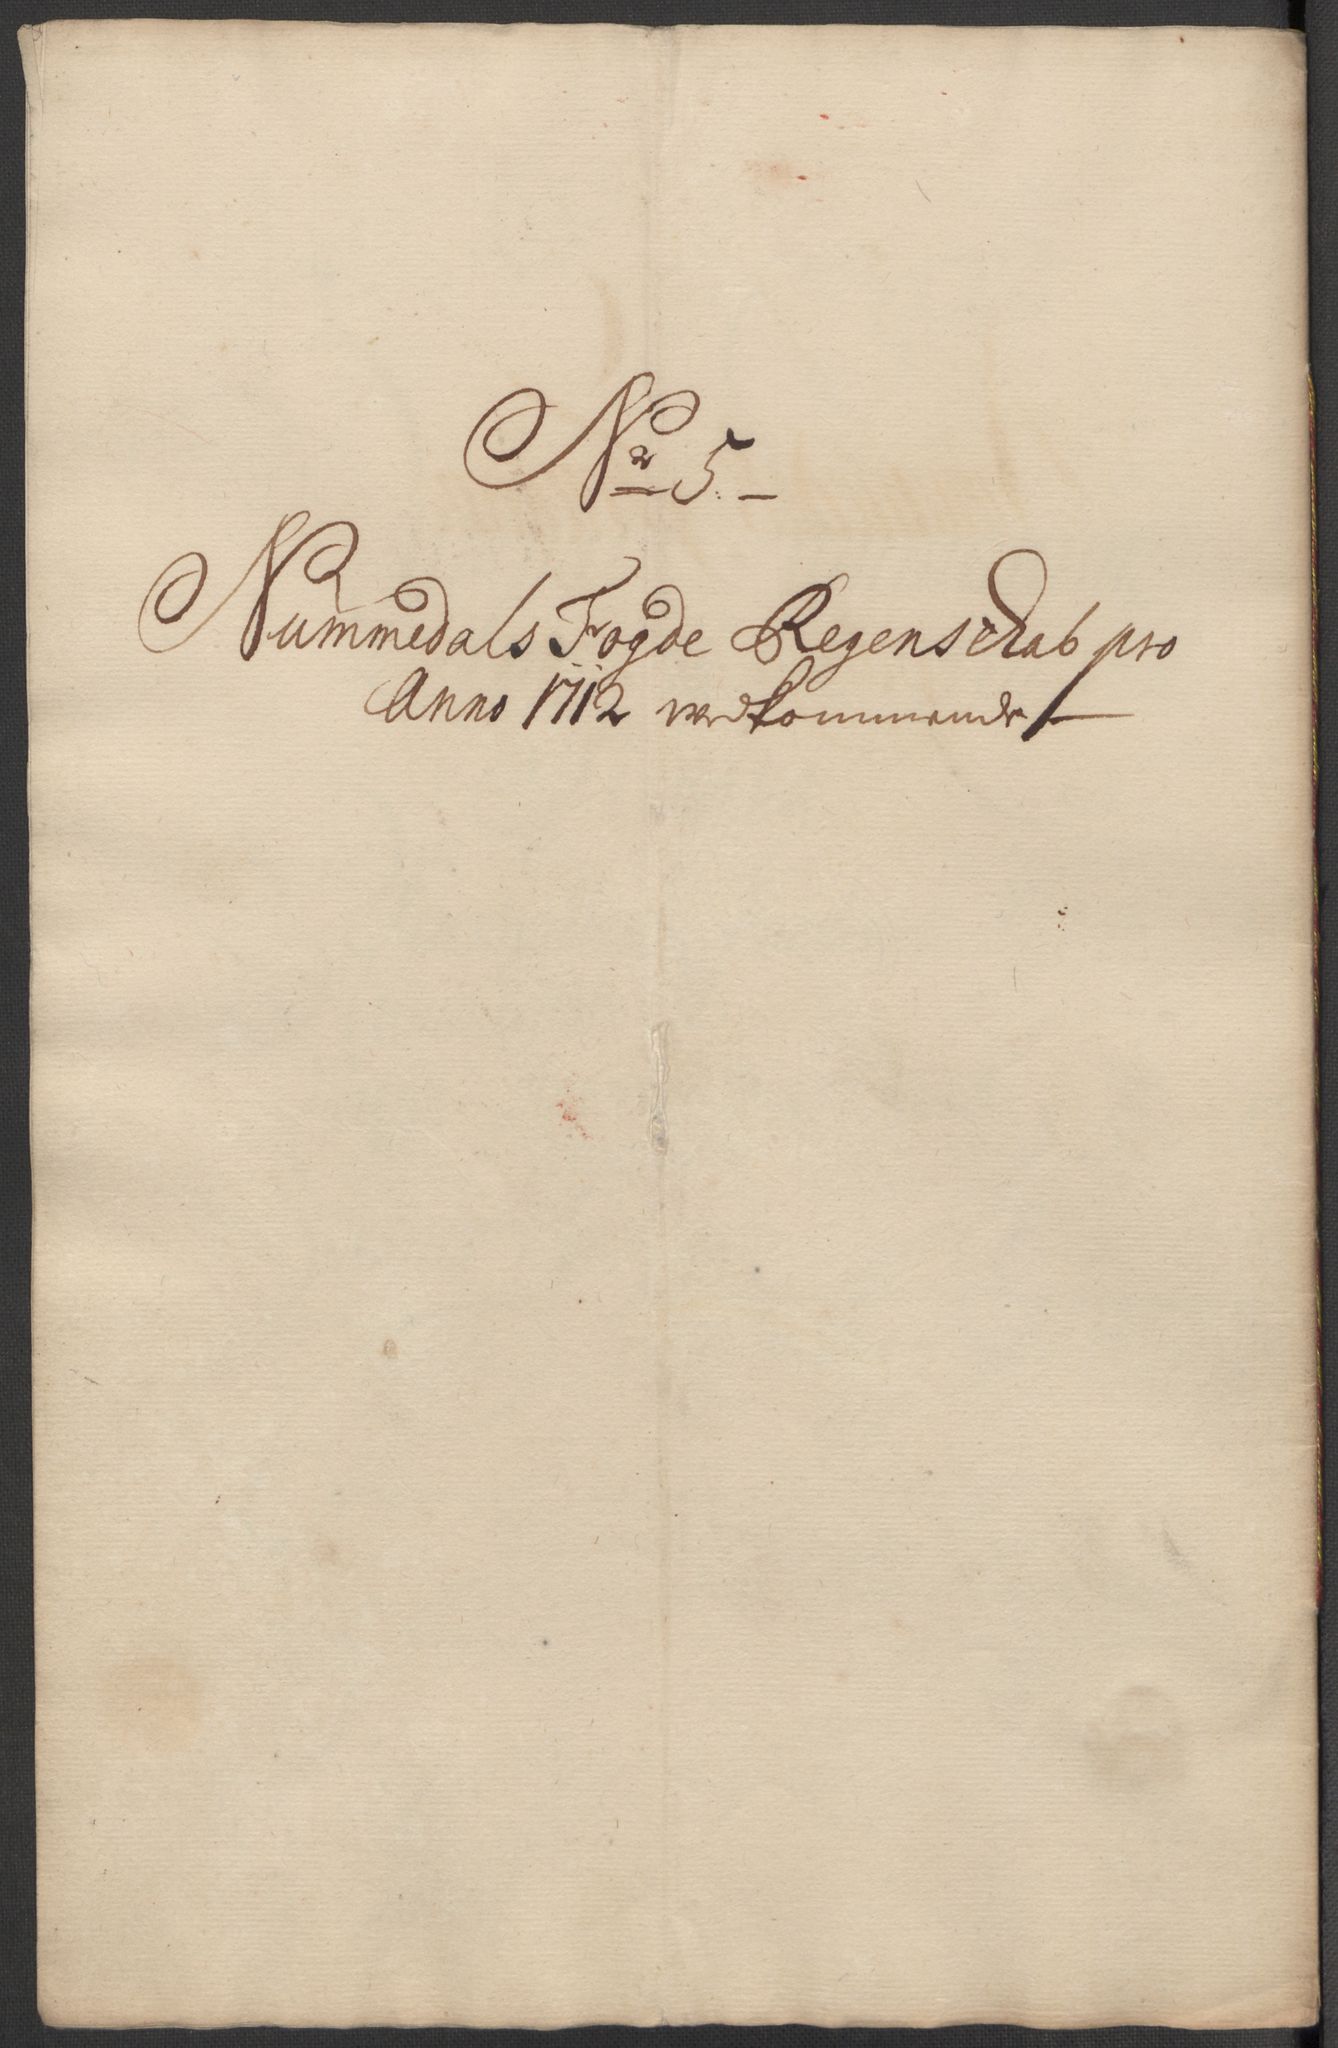 No 5.
Nummedals Fogde Regenschab pro
Anno 1712 vedkommende